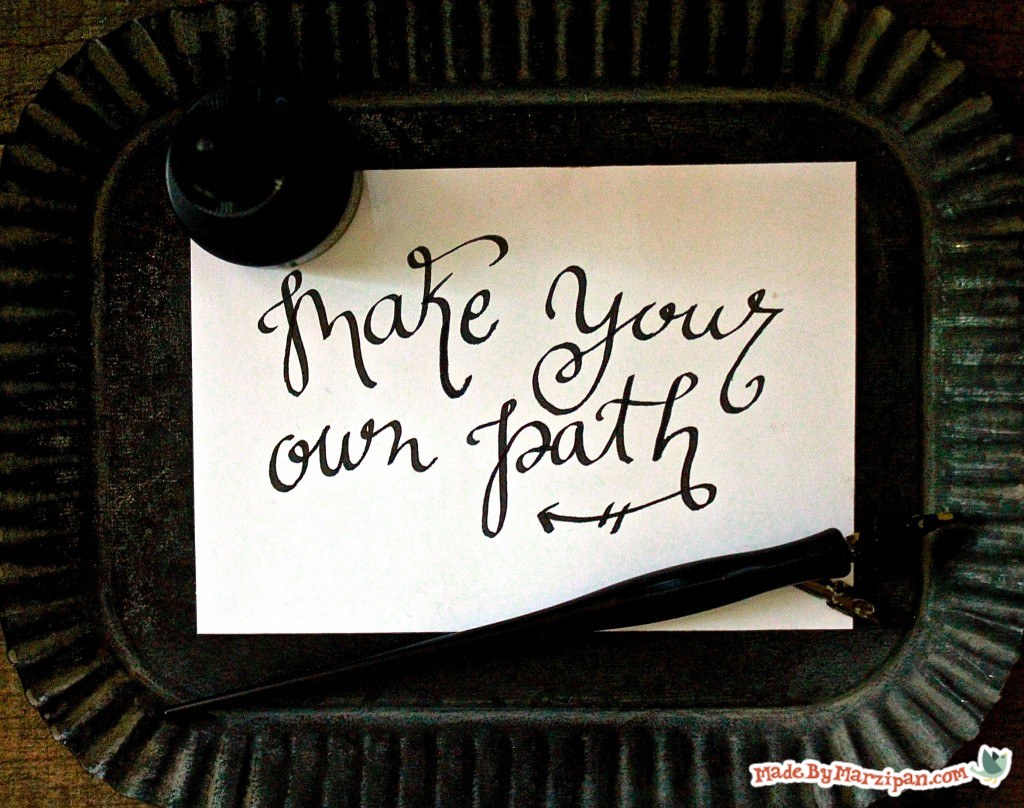 make your
own path
MadeByMarzipan.com